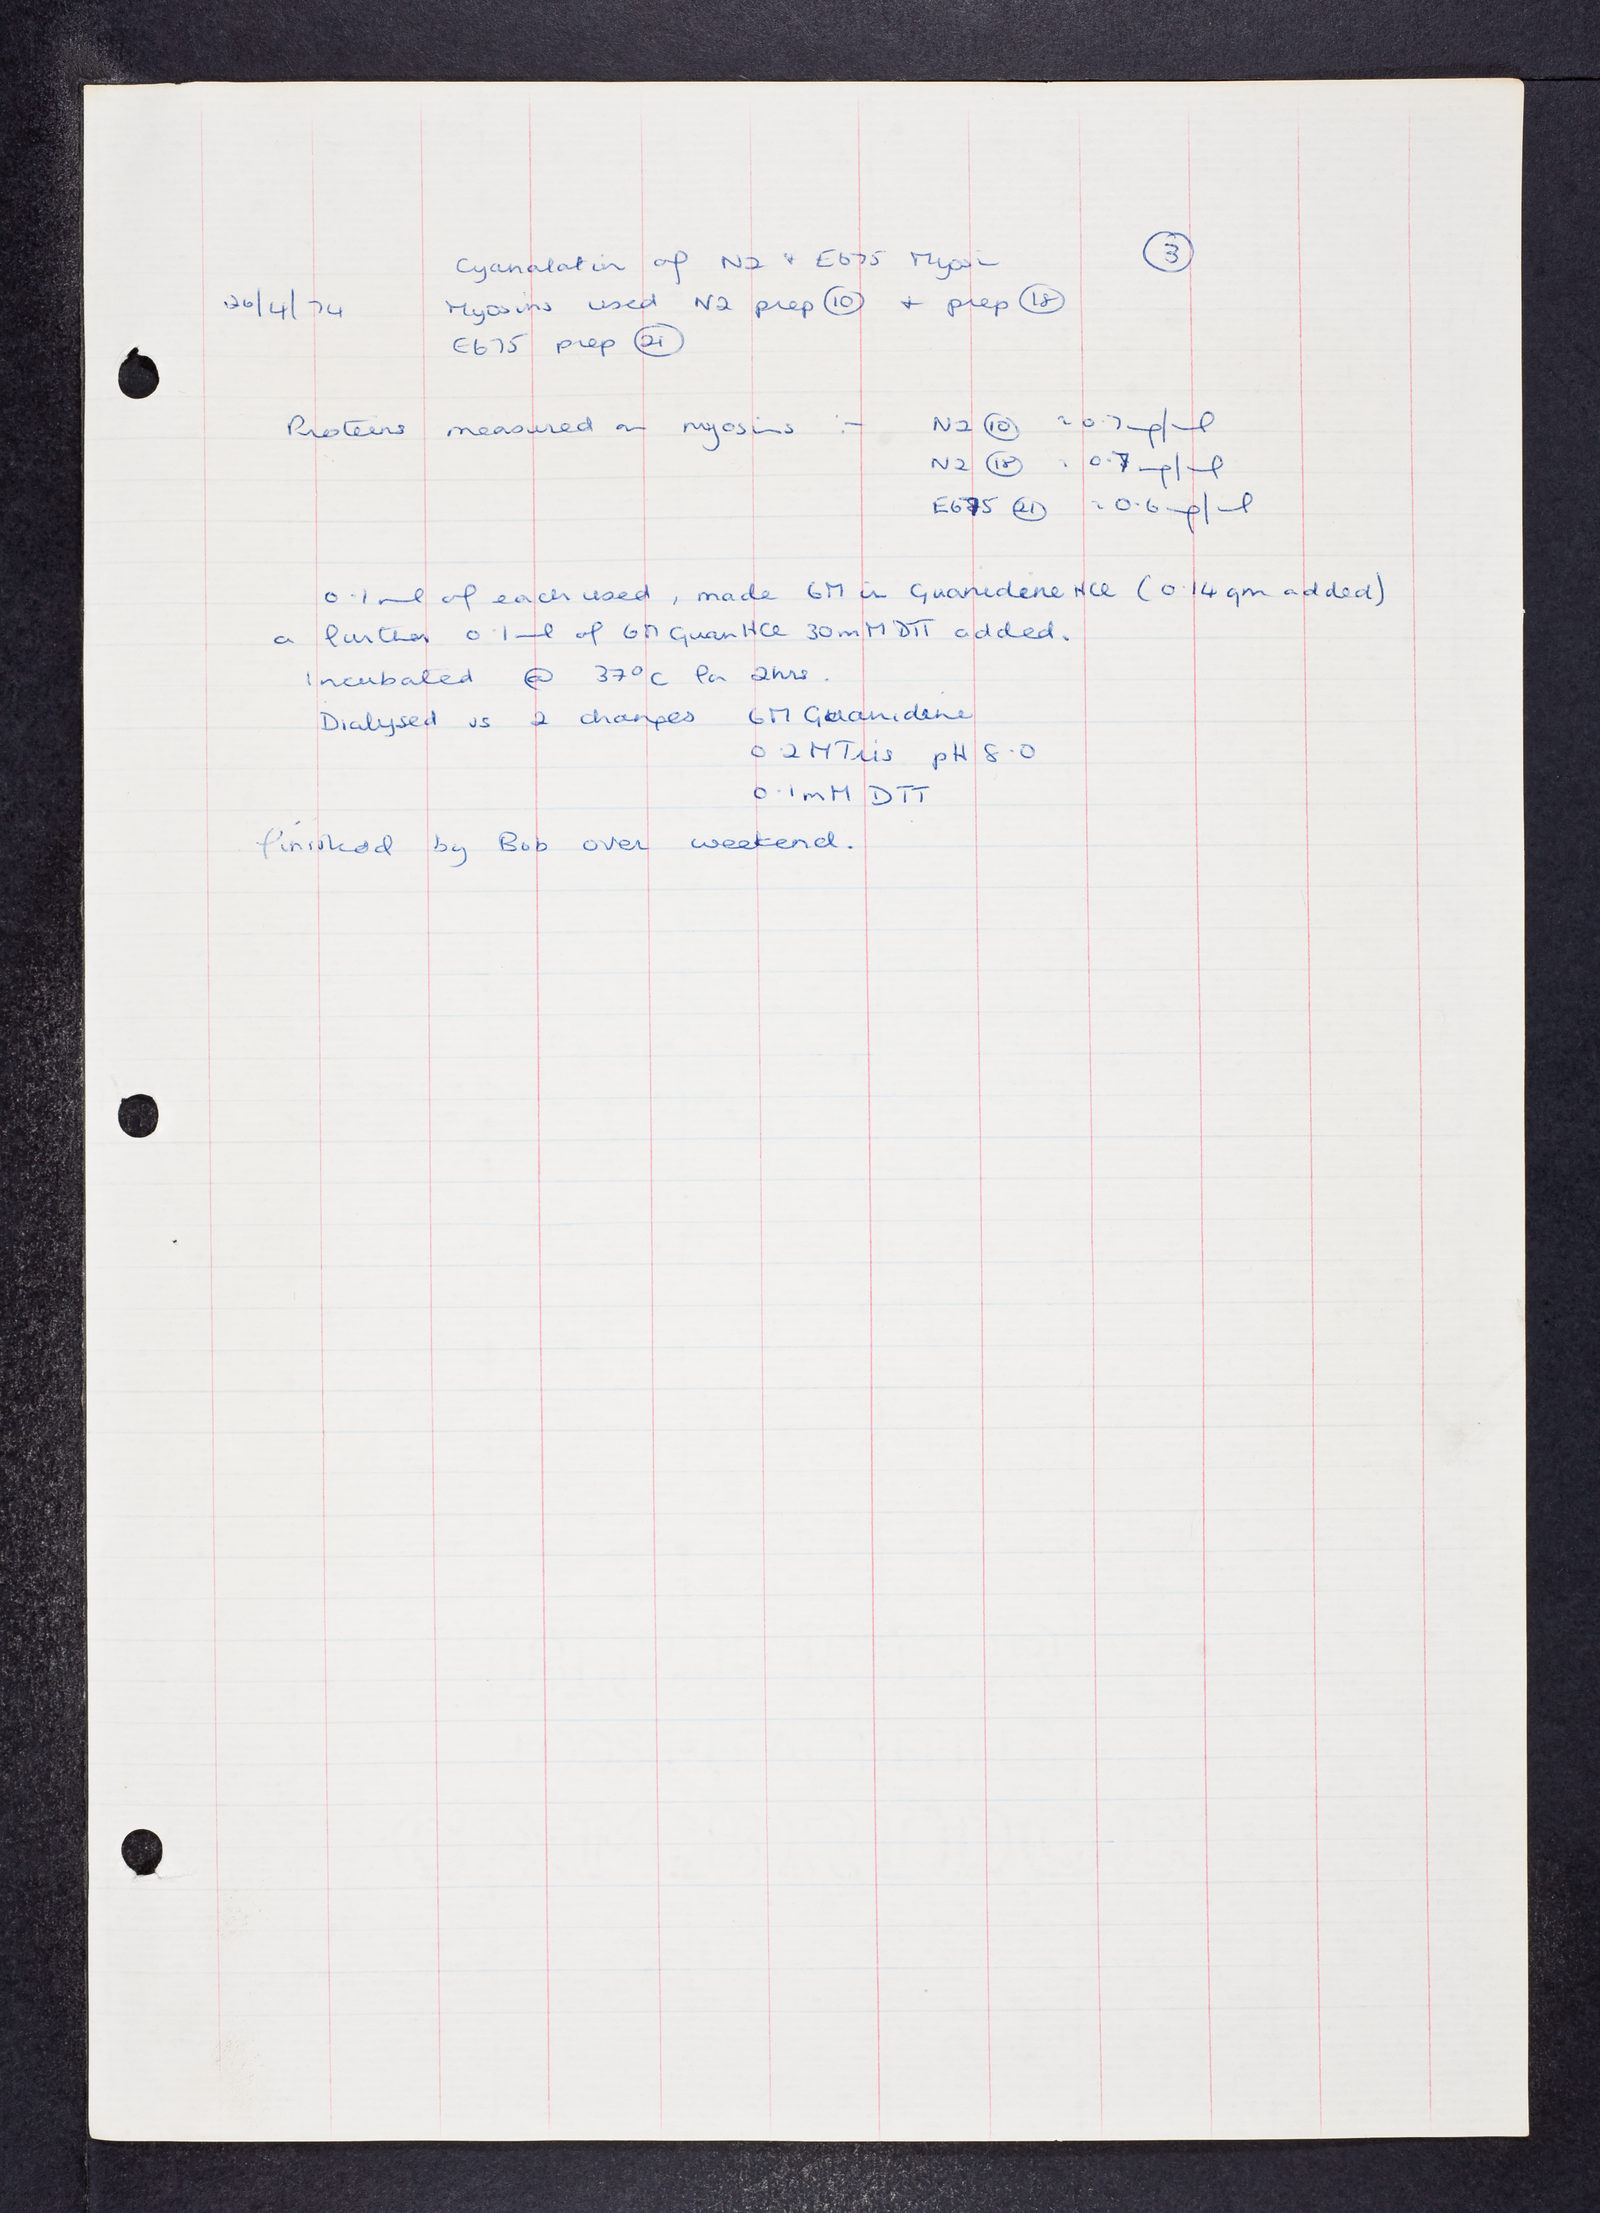 Cyanalation of N2 + E675 Myosin ③
26/4/74 Myosins used N2 prep ⑩ + prep ⑱
E675 prep ㉑
Proteins measured on myosins :- N2 ⑩ = 0.7 mg/ml
N2 ⑱ = 0.7 mg/ml
E675 ㉑ = 0.6 mg/ml
0.1 ml of each used, made 6M in Guanidene HCl (0.14 gm added)
a further 0.1 ml of 6M Guan HCl 30mM DTT added.
Incubated @ 37°C for 2hrs.
Dialysed vs 2 changes 6M Guanidine
0.2M Tris pH 8.0
0.1mM DTT
finished by Bob over weekend.